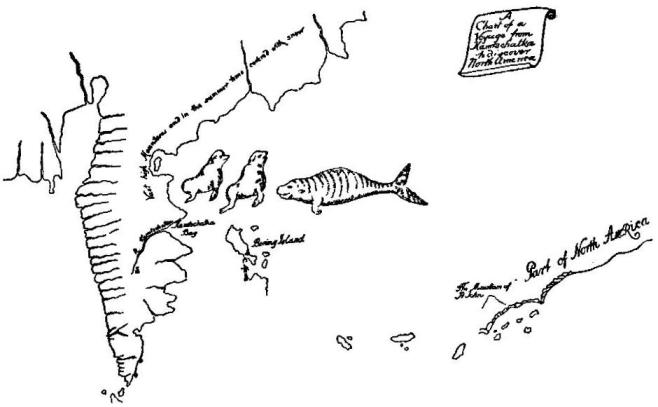 A
Chart of a
Voyage from
Kamtschatka
to discover
North America
Vast high Mountains and in the summer time covered with snow
Kamtschatka
Bay
Bering Island
The Mountain of
St John
Part of North America